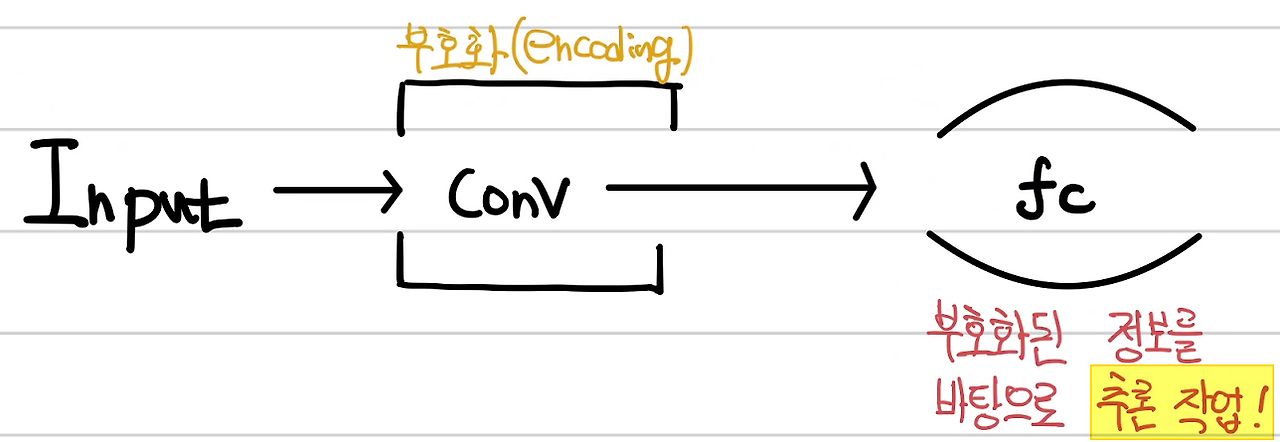 부호화(encoding)
Input → Conv → fc
부호화된 정보를
바탕으로 추론 작업!